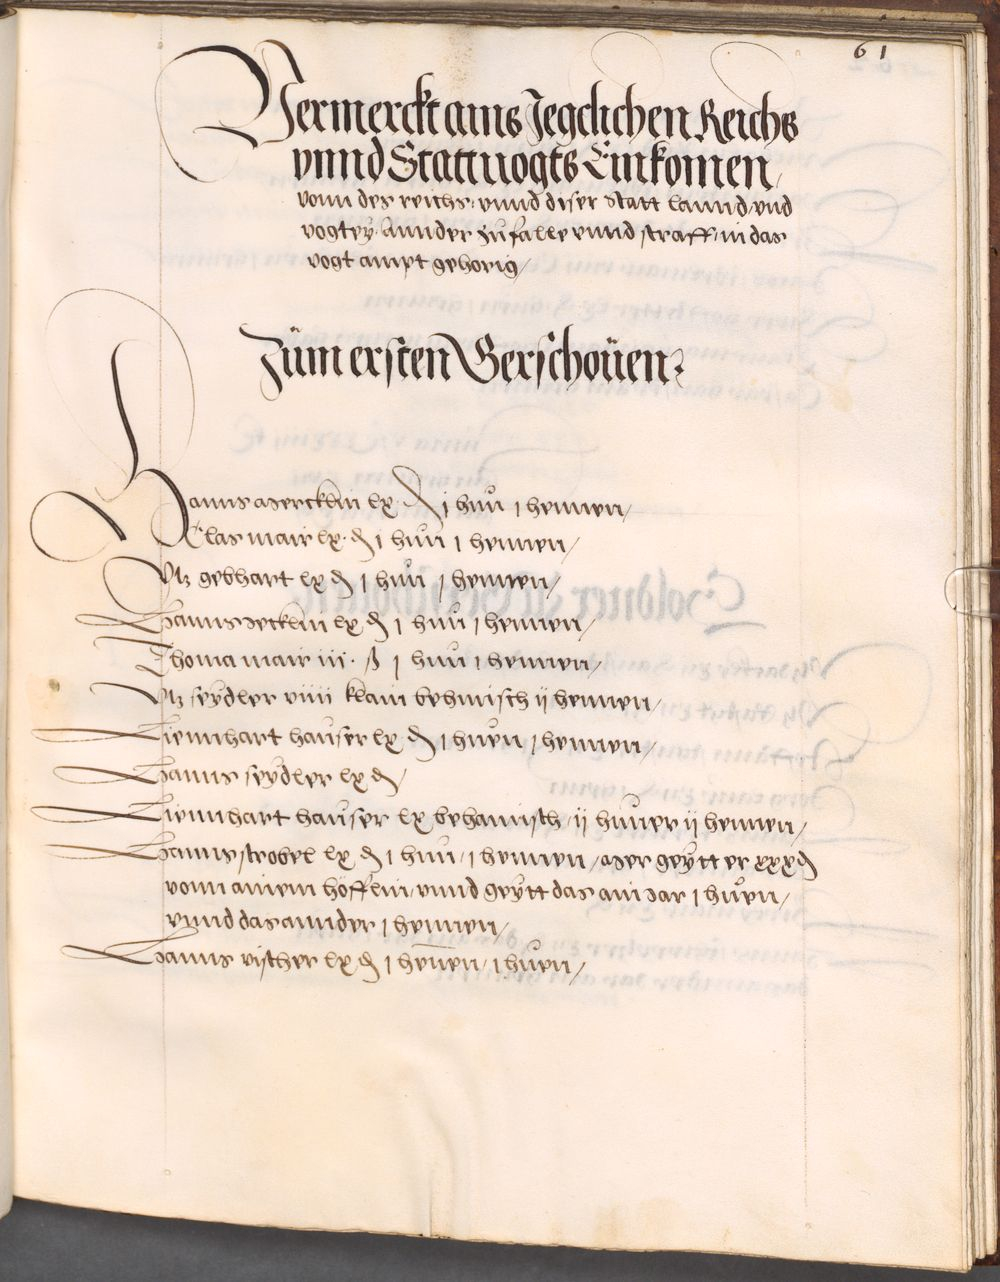 61
Vermerckt ains Jegclichen Reichs
vnnd Stattuogts Einkomen,
vonn des reichs, vnnd diser statt lannd, vnd
vogtey, annder zufalle vnnd straff, in das
vogt ampt gehorig,
Zum ersten Gerschouen
Hanns Mercklin lx ₰ j hun j hennen,
Clas mair lx ₰ j hun j hennen,
Vtz gebhart lx ₰ j hun j hennen,
Hanns Jecklin lx ₰ j hun j hennen,
Thoma mair iii ß j hun j hennen,
Vtz seydler viiii klain behmisch ij hennen,
Liennhart hauser lx ₰ j huen j hennen,
Hanns seydler lx ₰,
Liennhart hauser lx behamisch, ij huner ij hennen,
Hanns strobel lx ₰ j hun, j hennen, Mer geytt er xxx ₰
vonn ainem höfflin, vnnd geytt das ain Jar j huen,
vnnd das annder j hennen,
Hanns vischer lx ₰ j hennen, j huen,